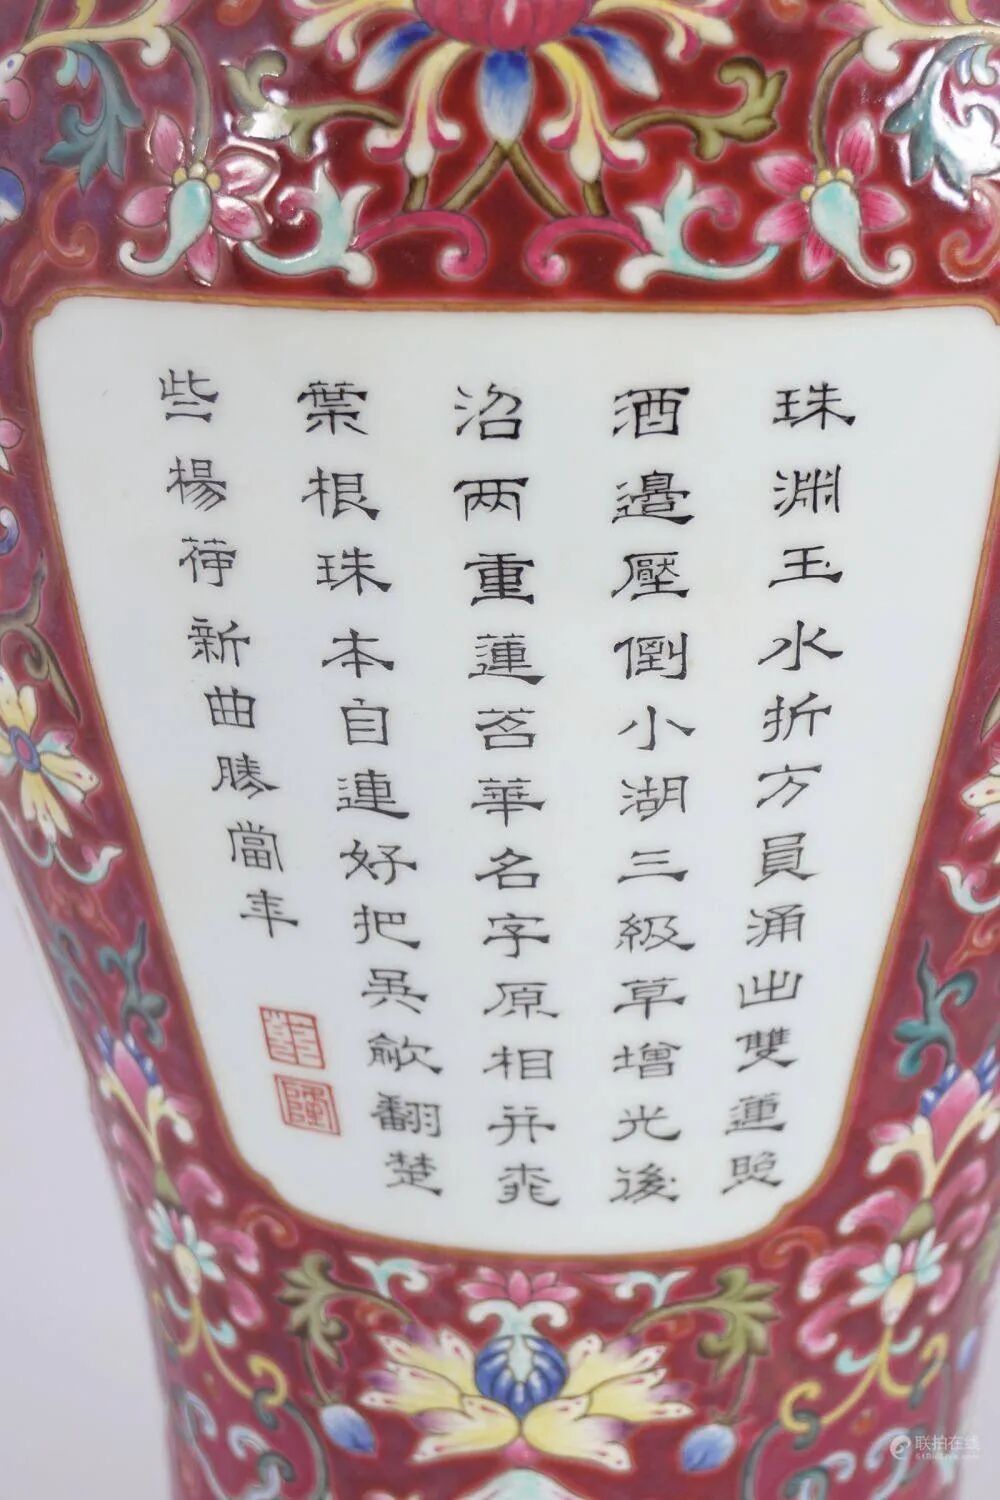 珠淵玉水折方員涌出雙蓮照
酒邉壓倒小湖三級草增光後
沼兩重蓮茗華名字原相并桃
葉根珠本自連好把吳歈翻楚
些楊荷新曲勝當年
乾
隆
联拍在线